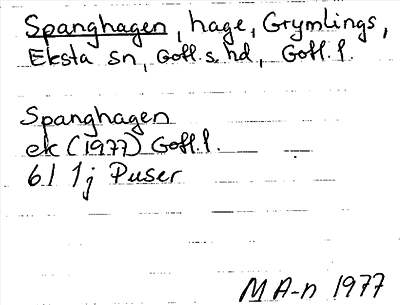 Spanghagen, hage, Grymlings,
Eksta sn, Gotl. s. hd, Gotl. l.
Spanghagen
ek (1977) Gotl. l.
6I 1j Puser
M A-n 1977